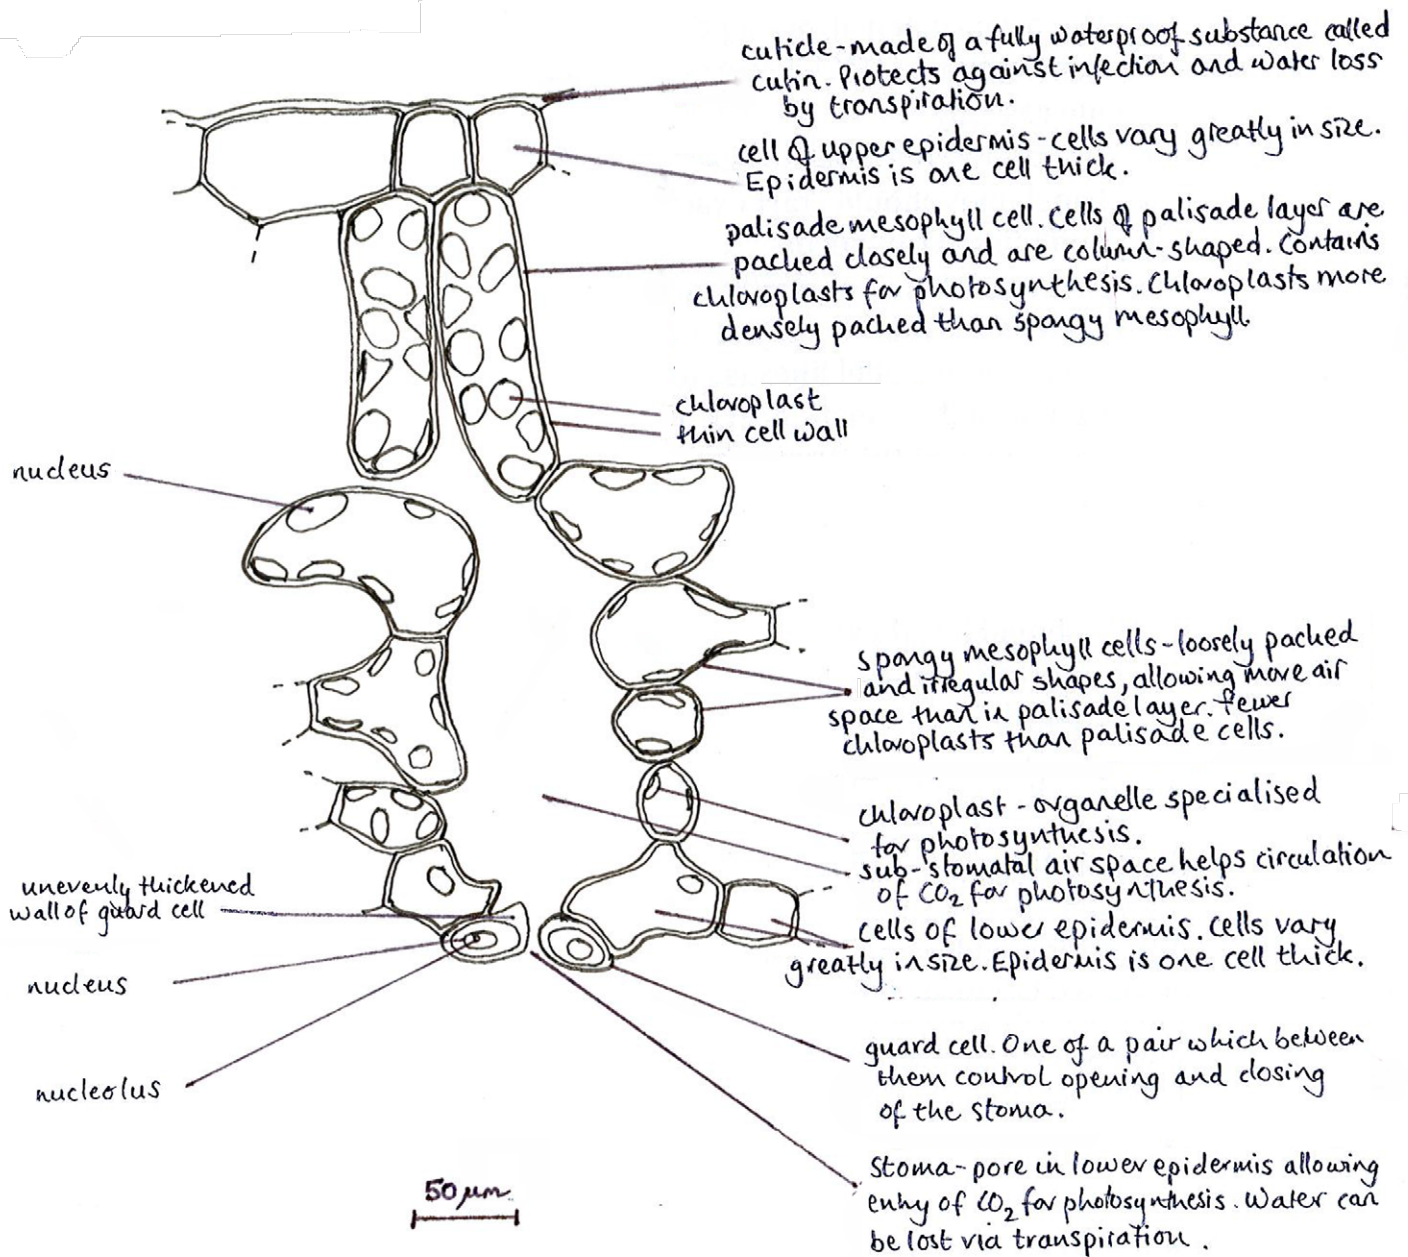 cuticle-made of a fully waterproof substance called
cutin. Protects against infection and water loss
by transpiration.
cell of upper epidermis-cells vary greatly in size.
Epidermis is one cell thick.
palisade mesophyll cell. Cells of palisade layer are
packed closely and are column-shaped. Contains
chloroplasts for photosynthesis. Chloroplasts more
densely packed than spongy mesophyll.
chloroplast
thin cell wall
nucleus
spongy mesophyll cells-loosely packed
and irregular shapes, allowing more air
space than in palisade layer. fewer
chloroplasts than palisade cells.
chloroplast - organelle specialised
for photosynthesis.
sub-stomatal air space helps circulation
of CO2 for photosynthesis.
unevenly thickened
wall of guard cell
cells of lower epidermis. Cells vary
greatly in size. Epidermis is one cell thick.
nucleus
guard cell. One of a pair which between
them control opening and closing
of the stoma.
nucleolus
Stoma-pore in lower epidermis allowing
entry of CO2 for photosynthesis. Water can
be lost via transpiration.
50 µm